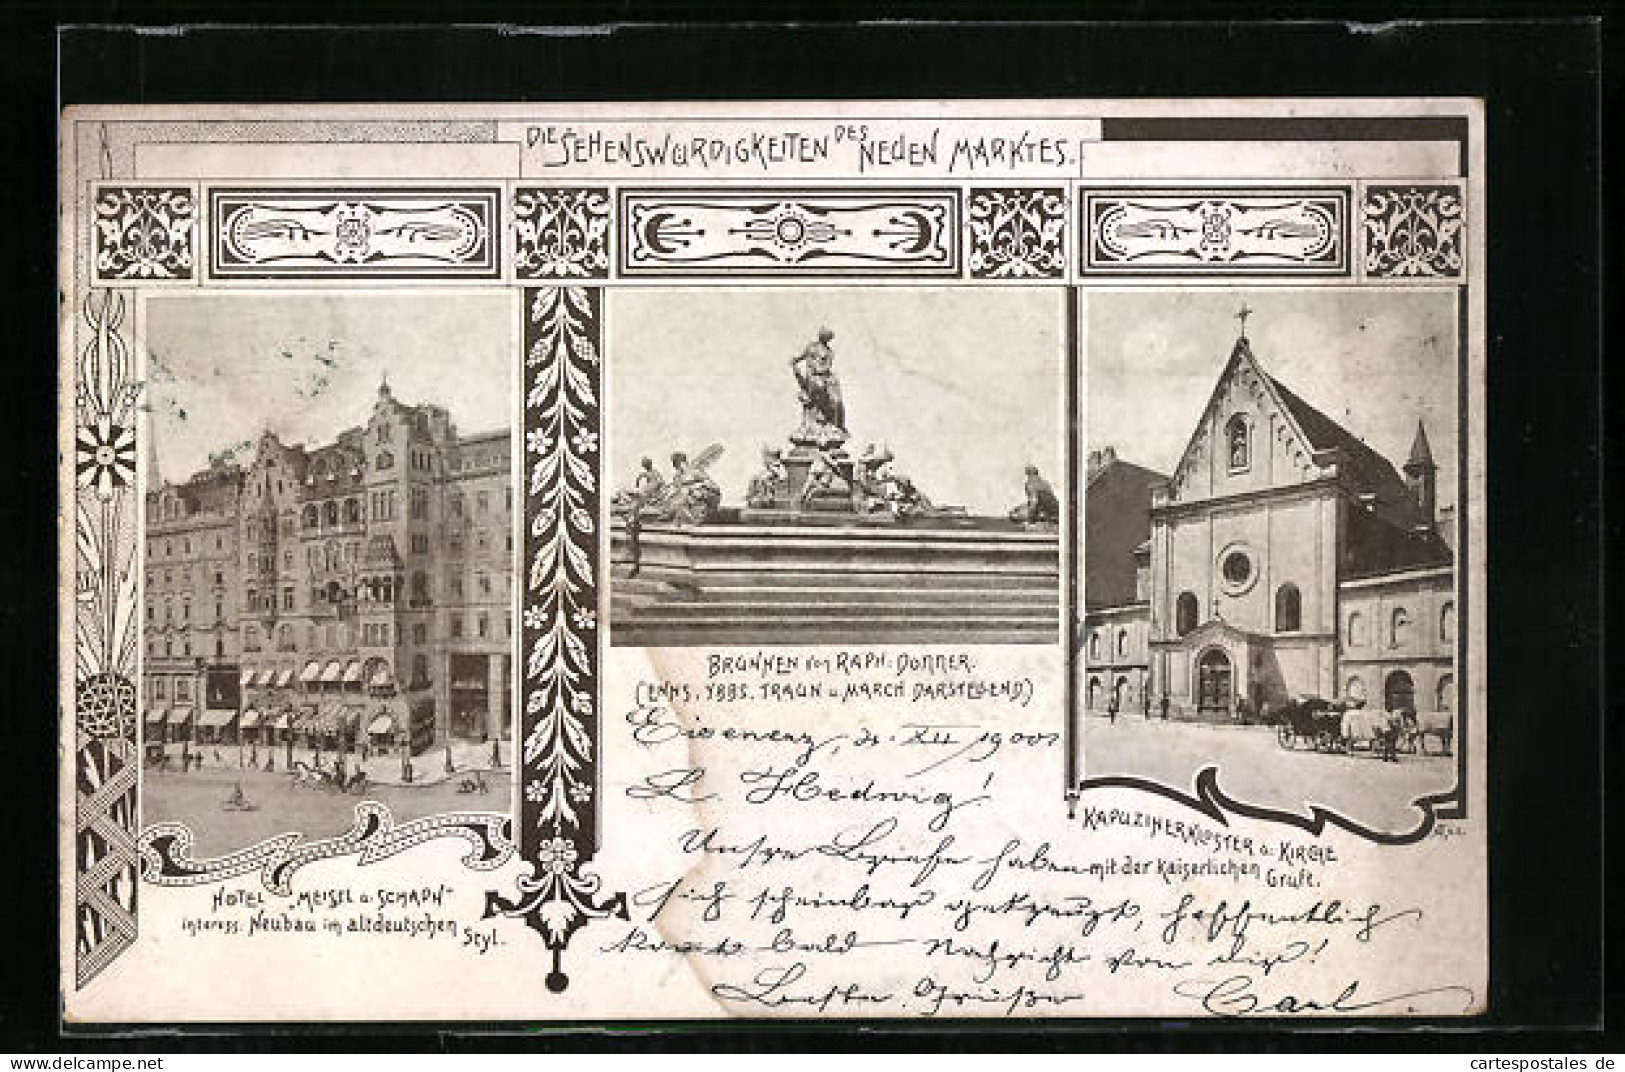 DIE SEHENSWÜRDIGKEITEN DES NEUEN MARKTES.
HOTEL "MEISEL u. SCHADN"
interess. Neubau im altdeutschen Styl.
BRUNNEN von RAPH: DONNER.
(ENNS, YBBS, TRAUN u. MARCH DARSTELLEND)
KAPUZINERKLOSTER u. KIRCHE
mit der Kaiserlichen Gruft.
Eisenerz, XII 1900
L. Hedwig!
Unsre Briefe haben
sich scheinbar gekreuzt, hoffentlich
kommt bald Nachricht von dir!
Beste Grüße Carl.
carte-postale.com
cartespostales de